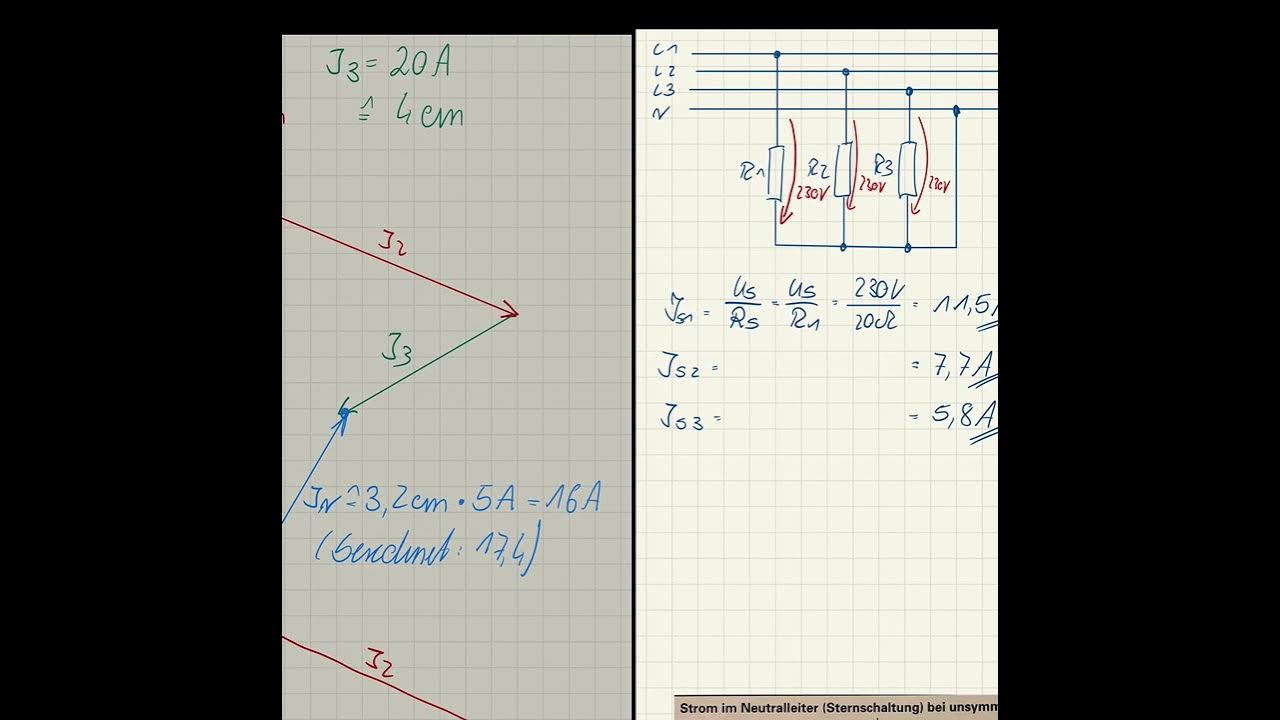 J3 = 20A
≙ 4cm
J2
J3
JN ≙ 3,2cm · 5A = 16A
(berechnet: 17,4)
J2
L1
L2
L3
N
R1 230V R2 230V R3 230V
JS1 = US/RS = US/R1 = 230V/20Ω = 11,5
JS2 = = 7,7A
JS3 = = 5,8A
Strom im Neutralleiter (Sternschaltung) bei